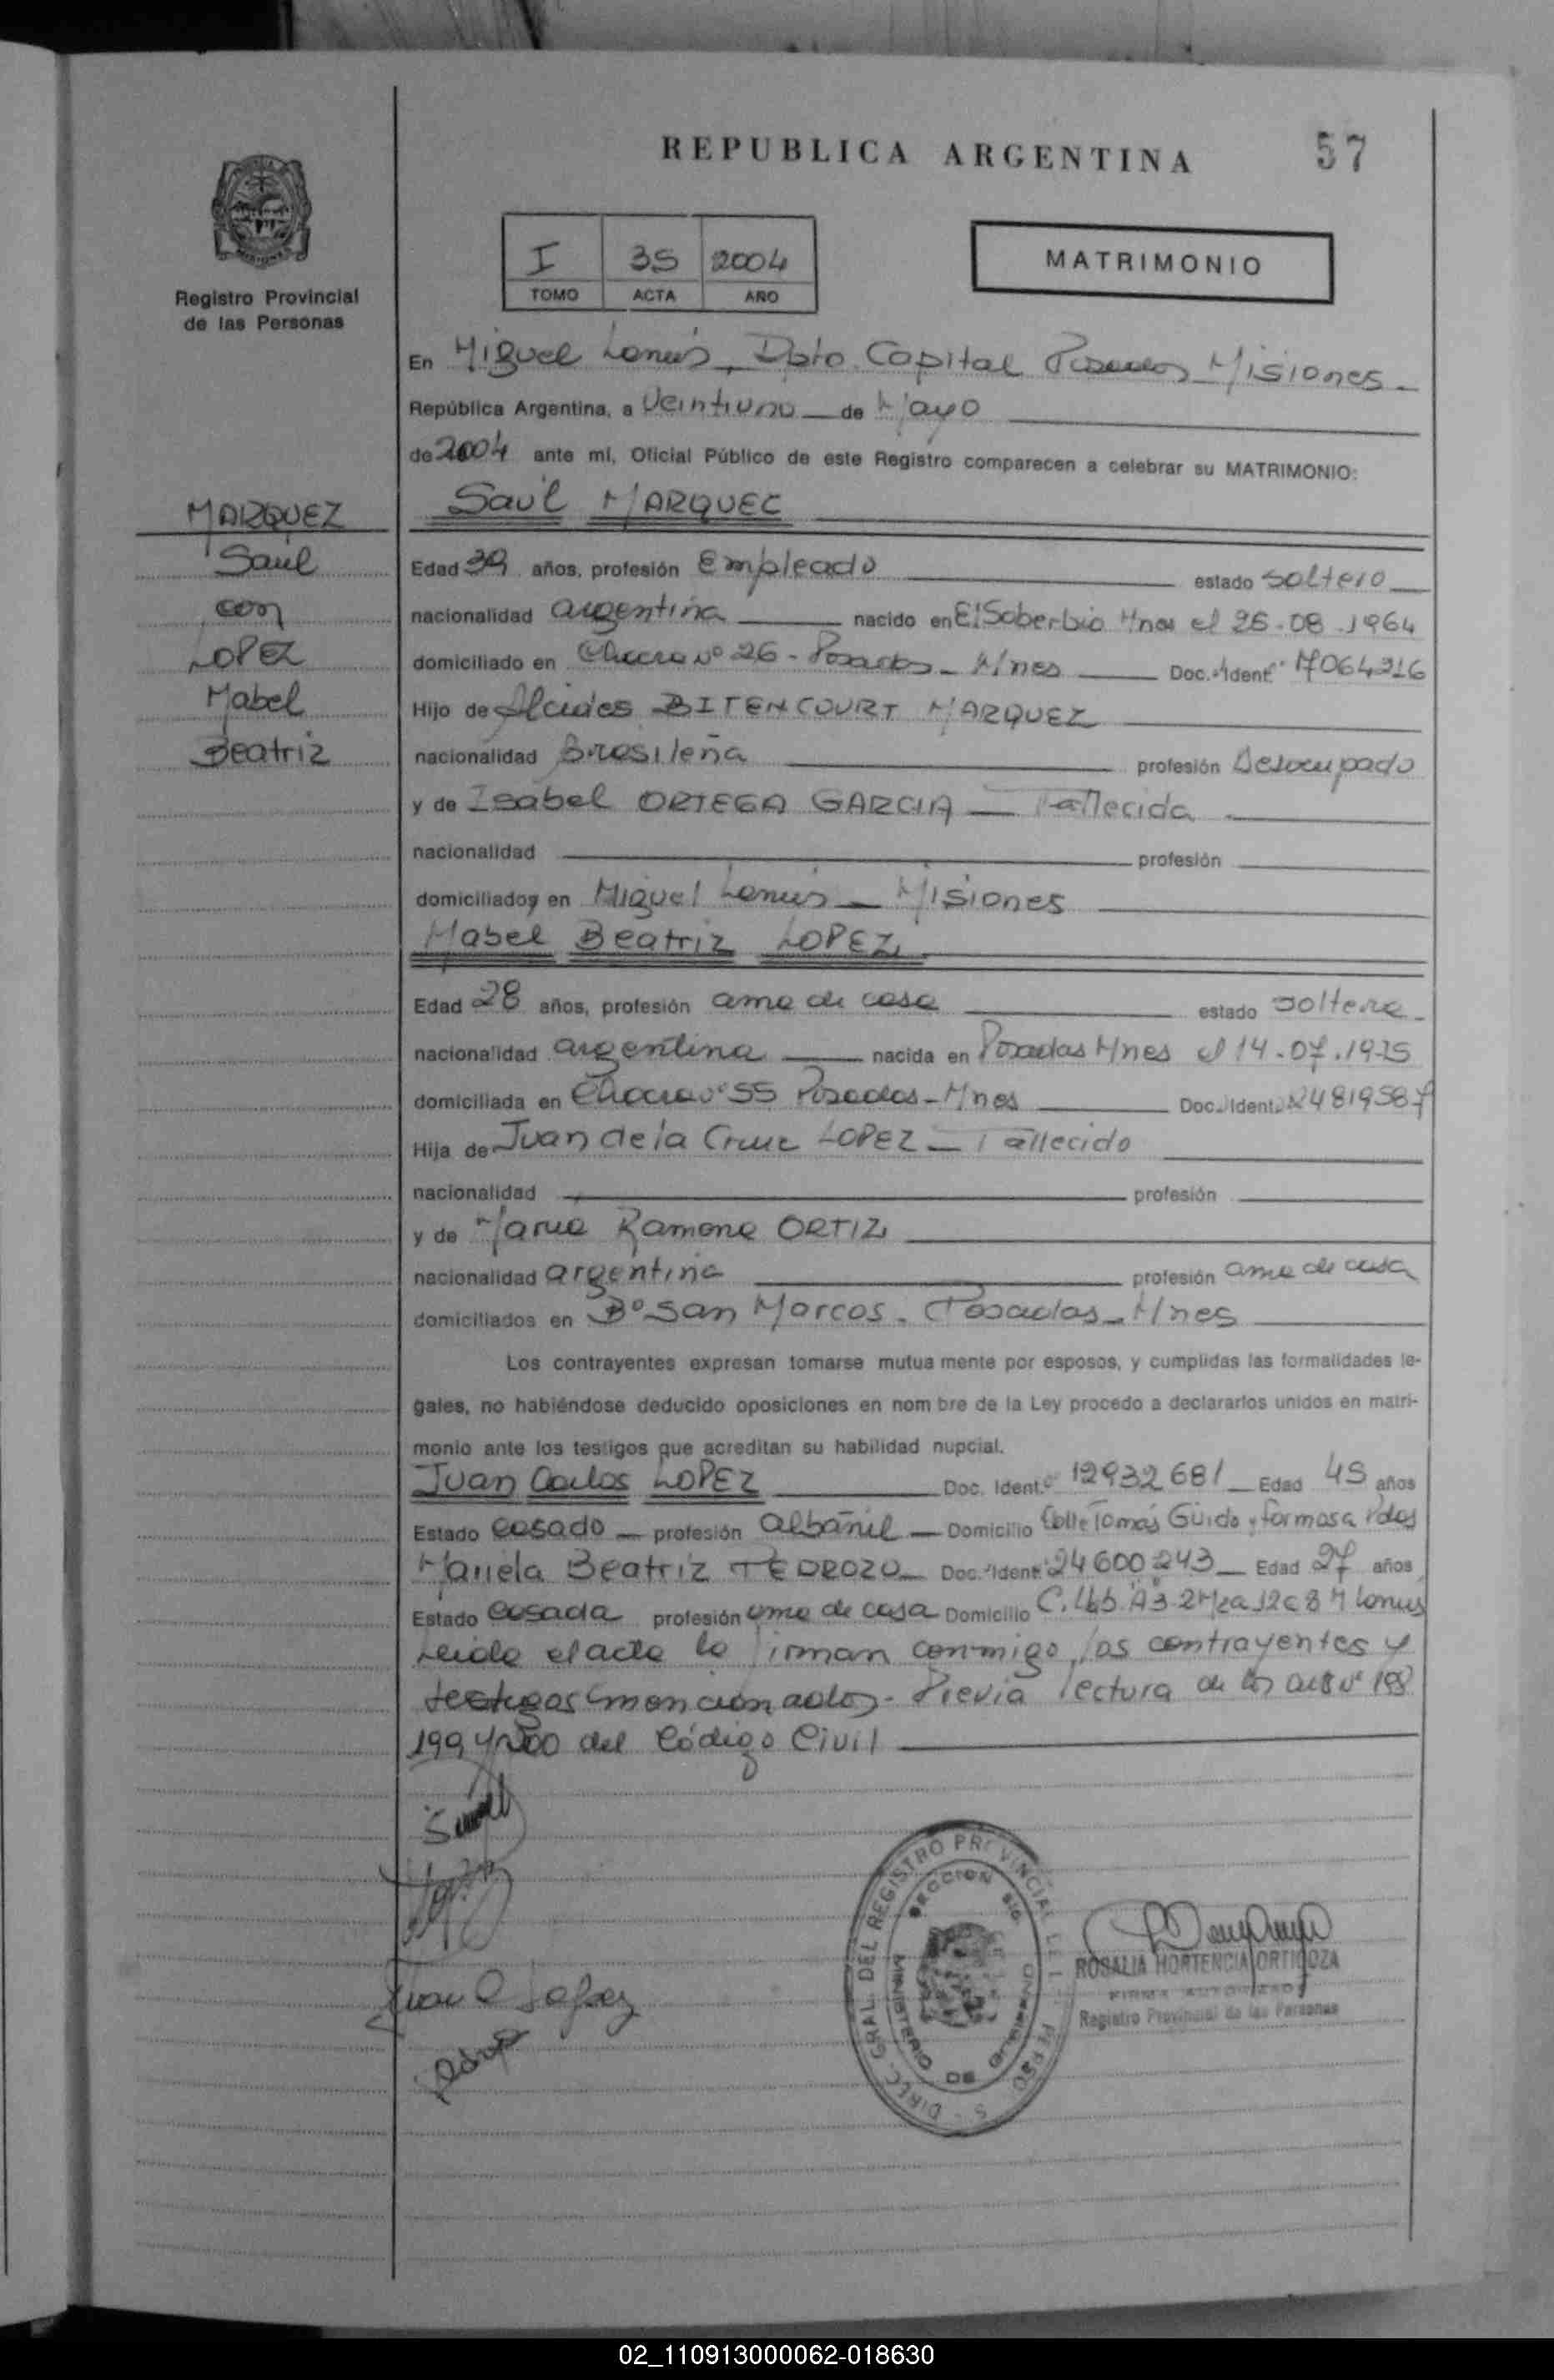 REPUBLICA ARGENTINA 57
I 35 2004
TOMO ACTA AÑO
MATRIMONIO
Registro Provincial
de las Personas
En Miguel Lanús, Dpto. Capital Posadas Misiones
República Argentina, a Veintiuno de Mayo
de 2004 ante mí, Oficial Público de este Registro comparecen a celebrar su MATRIMONIO:
MARQUEZ
Saul
con
LOPEZ
Mabel
Beatriz
Saúl MARQUEZ
Edad 39 años, profesión Empleado estado soltero
nacionalidad argentina nacido en El Soberbio Mnes el 26-08-1964
domiciliado en Chacra nº 26 - Posadas - Mnes Doc. Ident. 17064316
Hijo de Alcides BITENCOURT MARQUEZ
nacionalidad Brasileña profesión Desocupado
y de Isabel ORTEGA GARCIA - Fallecida
nacionalidad profesión
domiciliado en Miguel Lanús - Misiones
Mabel Beatriz LOPEZ
Edad 28 años, profesión ama de casa estado soltera
nacionalidad argentina nacida en Posadas Mnes el 14-07-1975
domiciliada en Chacra nº 55 Posadas - Mnes Doc. Ident. 24819587
Hija de Juan de la Cruz LOPEZ - Fallecido
nacionalidad profesión
y de Maria Ramona ORTIZ
nacionalidad argentina profesión ama de casa
domiciliados en Bº San Marcos - Posadas - Mnes
Los contrayentes expresan tomarse mutua mente por esposos, y cumplidas las formalidades le-
gales, no habiéndose deducido oposiciones en nom bre de la Ley procedo a declararlos unidos en matri-
monio ante los testigos que acreditan su habilidad nupcial.
Juan Carlos LOPEZ Doc. Ident. 12932681 Edad 45 años
Estado casado profesión albañil Domicilio Calle Tomás Guido y Formosa Pdas
Mariela Beatriz PEDROZO Doc. Ident. 24600243 Edad 27 años
Estado casada profesión ama de casa Domicilio Lanús
Leida el acta la firman conmigo, los contrayentes y
testigos mencionados - Previa lectura de los arts nº 198
199 y 200 del Código Civil
Juan C Lopez
DIREC. GRAL. DEL REGISTRO PROVINCIAL
ROSALIA HORTENCIA ORTIGOZA
FIRMA AUTORIZADA
Registro Provincial de las Personas
02_110913000062-018630